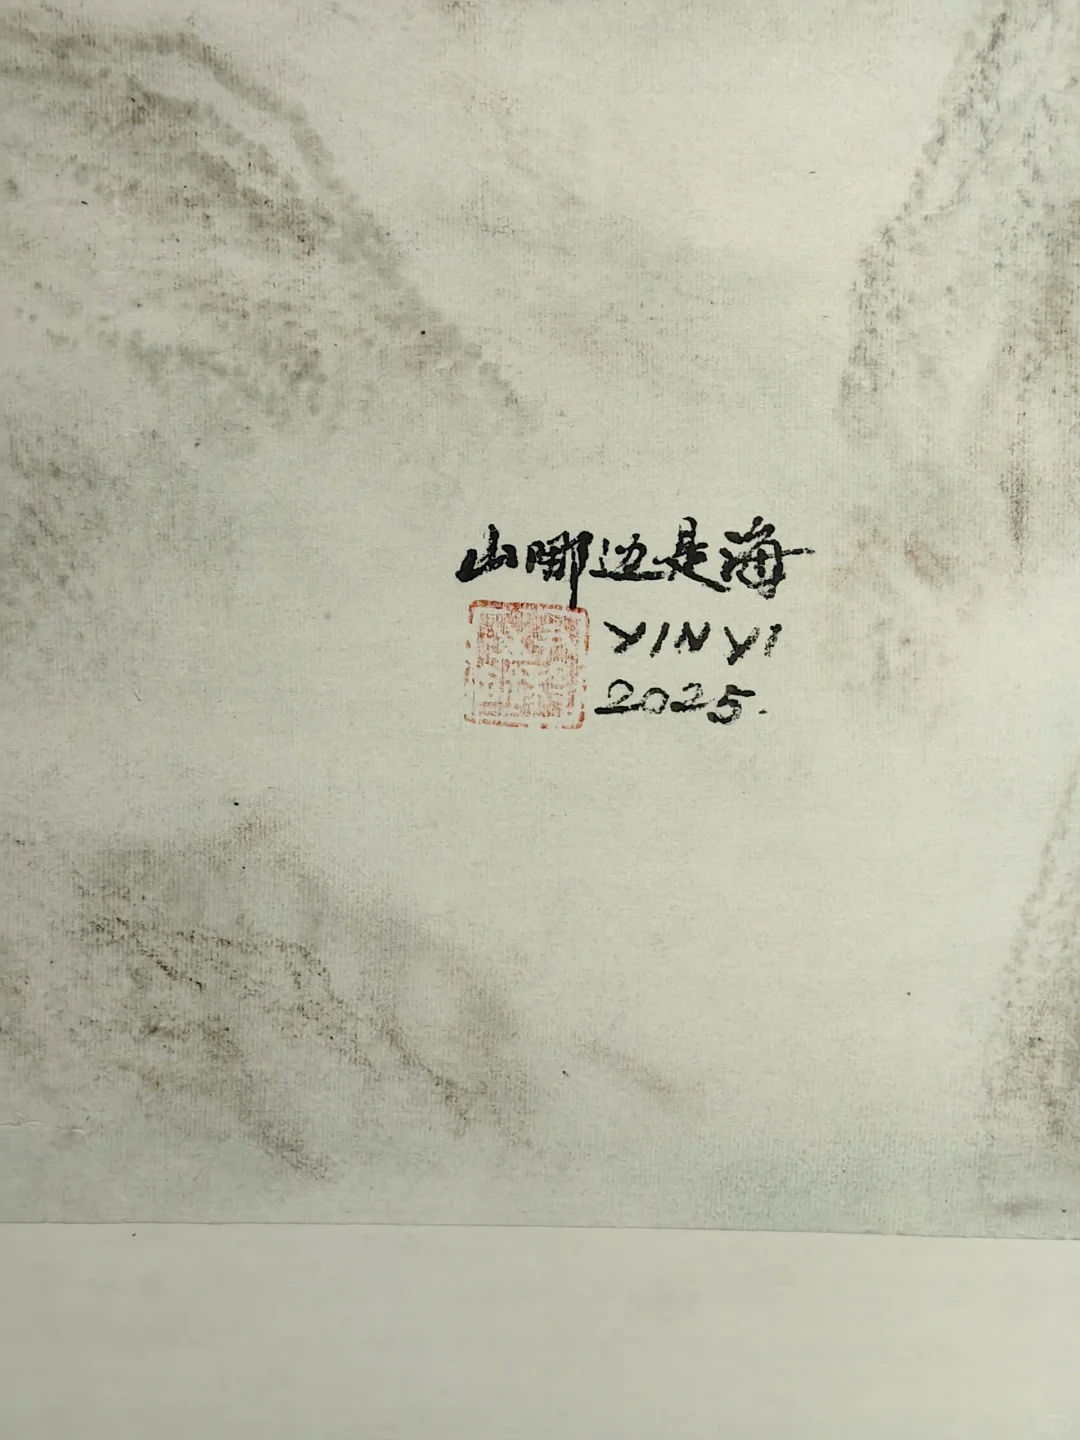 山哪边是海
YINYI
2025.